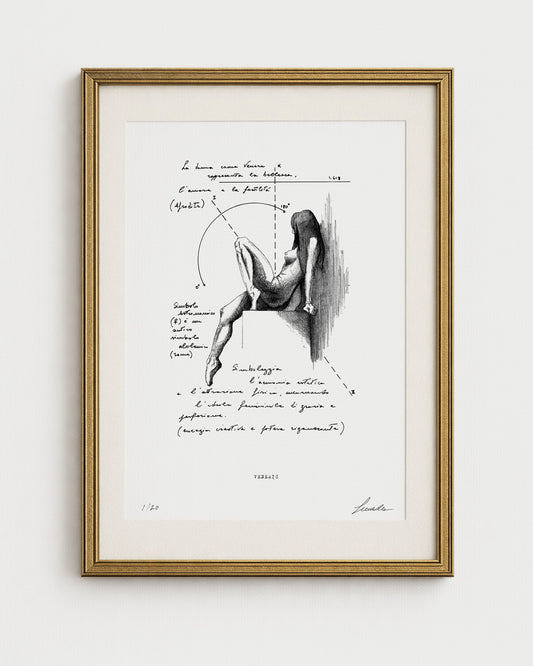 La luna come Venere
rappresenta la bellezza,
1.618
l'amore e la fertilità
(Afrodite)
180°
0°
Simbolo
astronomico
(♀) è un
antico
simbolo
alchemico
(rame)
Simboleggia
l'armonia estetica
e l'attrazione fisica, incarnando
l'ideale femminile di grazia e
perfezione.
(energia creativa e potere rigenerante)
VENERDÌ
1/20